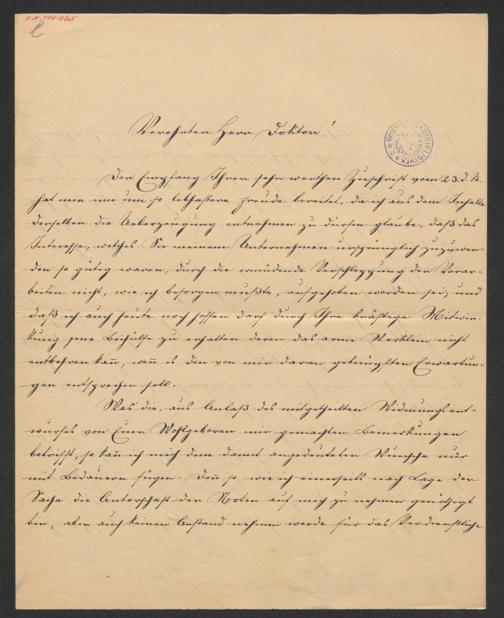 I.N. 710.065
Verehrter Herr Doktor!
Der Empfang Ihrer sehr werthen Zuschrift vom 23. d. M.
hat mir um so lebhaftere Freude bereitet, da ich aus dem Inhalte
derselben die Ueberzeugung entnehmen zu dürfen glaube, daß das
Interesse, welches Sie meinem Unternehmen ursprünglich zuzuwen-
den so gütig waren, durch die ermüdende Verschleppung der Vorar-
beiten nicht, wie ich besorgen mußte, aufgehoben worden sei, und
daß ich auch heute noch hoffen darf durch Ihre kräftige Mitwir-
kung jene Beihülfe zu erhalten deren das arme Werklein nicht
entbehren kann, wenn es den von mir daran geknüpften Erwartun-
gen entsprechen soll.
Was die, aus Anlaß des mitgetheilten Widmungsent-
wurfes von Euer Wohlgeboren mir gemachten Bemerkungen
betrifft, so kann ich mich dem damit angedeuteten Wunsche nur
mit Bedauern fügen. Denn so wie ich einerseits nach Lage der
Sache die Autorschaft der Noten auf mich zu nehmen genöthigt
bin, aber auch keinen Anstand nehmen werde für das Verdienstliche